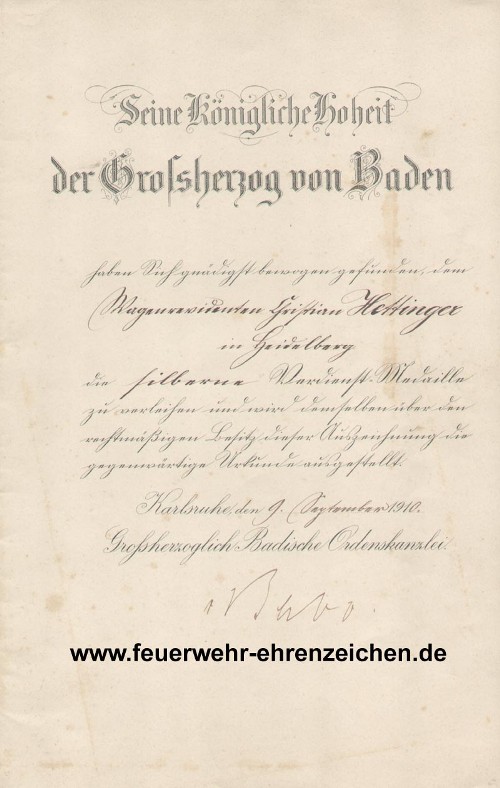 Seine Königliche Hoheit
der Grossherzog von Baden
haben Sich gnädigst bewogen gefunden, dem
Wagenrevidenten Christian Hettinger
in Heidelberg
die silberne Verdienst-Medaille
zu verleihen und wird demselben über den
rechtmäßigen Besitz dieser Auszeichnung die
gegenwärtige Urkunde ausgestellt.
Karlsruhe, den 9. September 1910.
Großherzoglich Badische Ordenskanzlei.
www.feuerwehr-ehrenzeichen.de